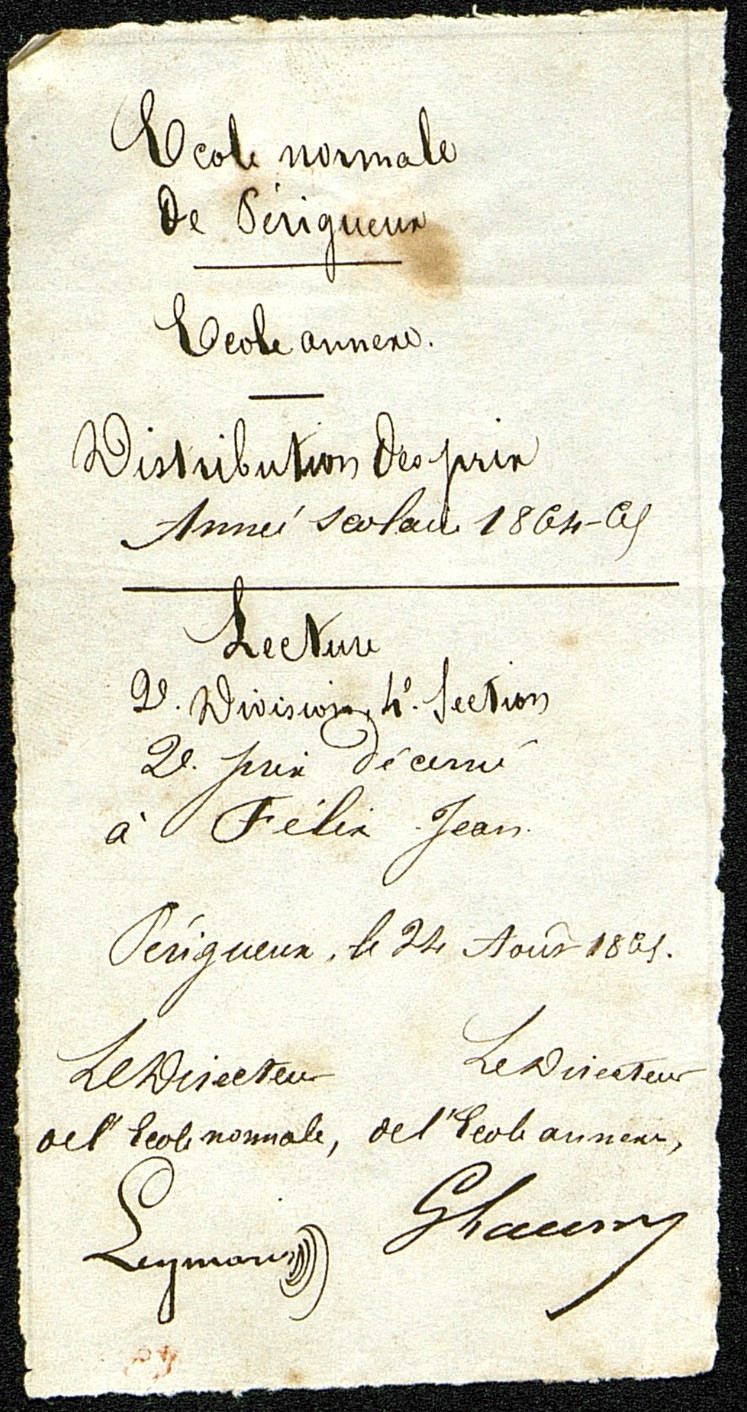 Ecole normale
de Périgueux
Ecole annexe.
Distribution des prix
Année scolaire 1864-65
Lecture
2e. Division, 4e. Section
2e. prix décerné
à Félix Jean.
Périgueux, le 24 Août 1865.
Le Directeur
de l'Ecole normale,
Leymarie
Le Directeur
de l'Ecole annexe,